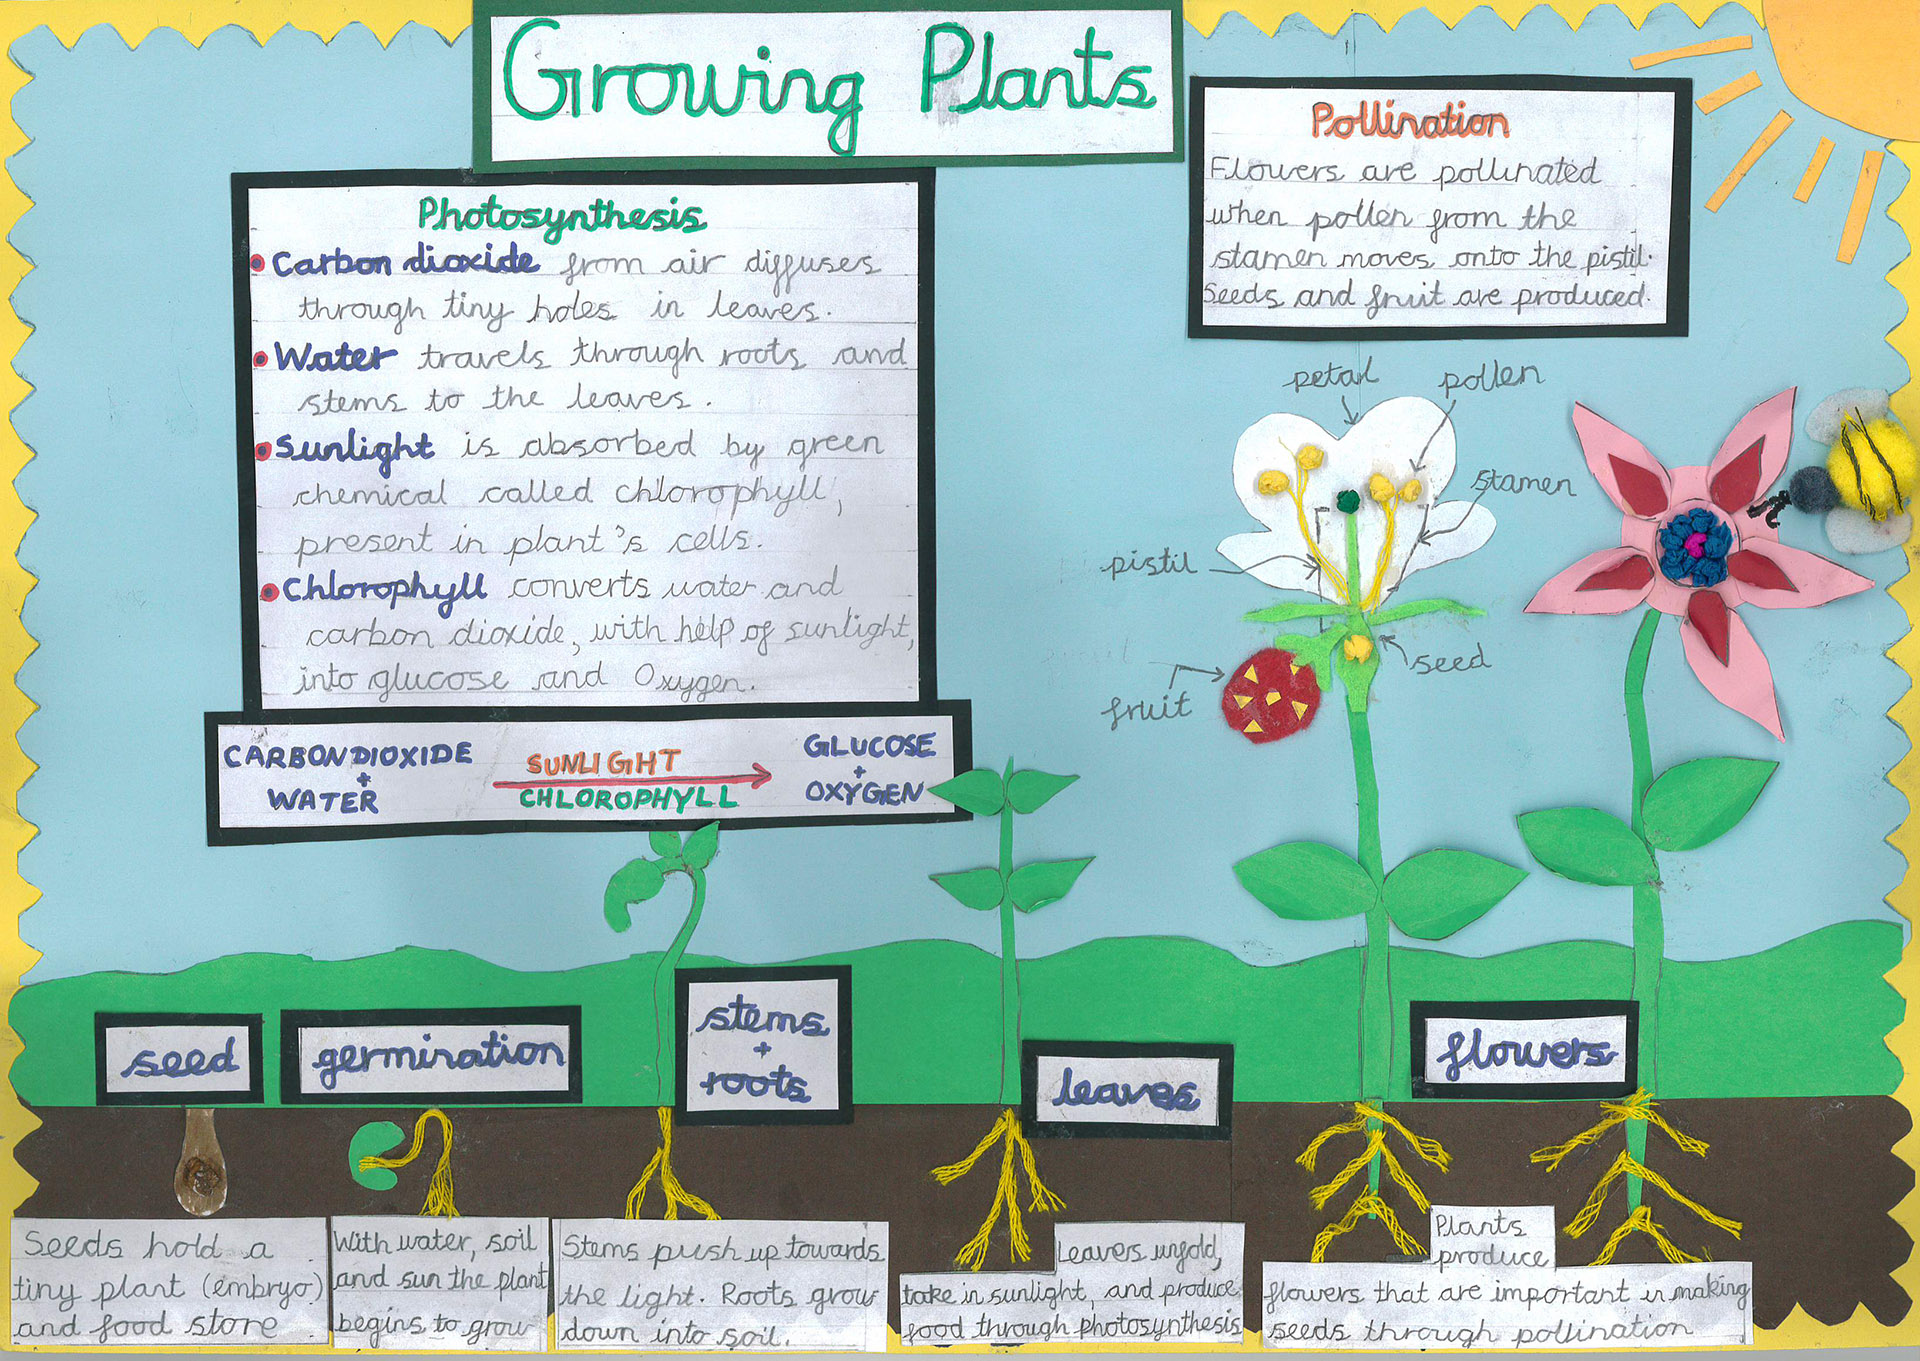 Growing Plants
Photosynthesis
Carbon dioxide from air diffuses
through tiny holes in leaves.
Water travels through roots and
stems to the leaves.
Sunlight is absorbed by green
chemical called chlorophyll,
present in plant's cells.
Chlorophyll converts water and
carbon dioxide, with help of sunlight,
into glucose and Oxygen.
CARBONDIOXIDE
+
WATER
SUNLIGHT
CHLOROPHYLL
GLUCOSE
+
OXYGEN
Pollination
Flowers are pollinated
when pollen from the
stamen moves onto the pistil.
Seeds and fruit are produced.
petal
pollen
stamen
pistil
seed
fruit
seed
germination
stems
+
roots
leaves
flowers
Seeds hold a
tiny plant (embryo)
and food store
With water, soil
and sun the plant
begins to grow
Stems push up towards
the light. Roots grow
down into soil.
Leavers unfold,
take in sunlight, and produce
food through photosynthesis
Plants
produce
flowers that are important in making
seeds through pollination